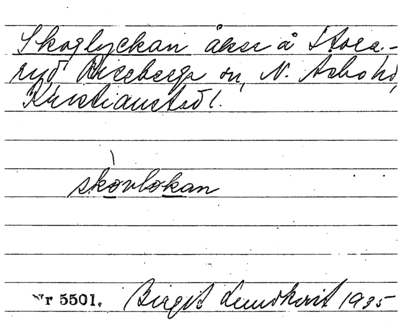 Skoglyckan åker å Stora-
ryd Riseberga sn, N. Åsbo hd,
Kristianstad l.
skovlokan
Nr 5501. Birgit Lundkvist 1935